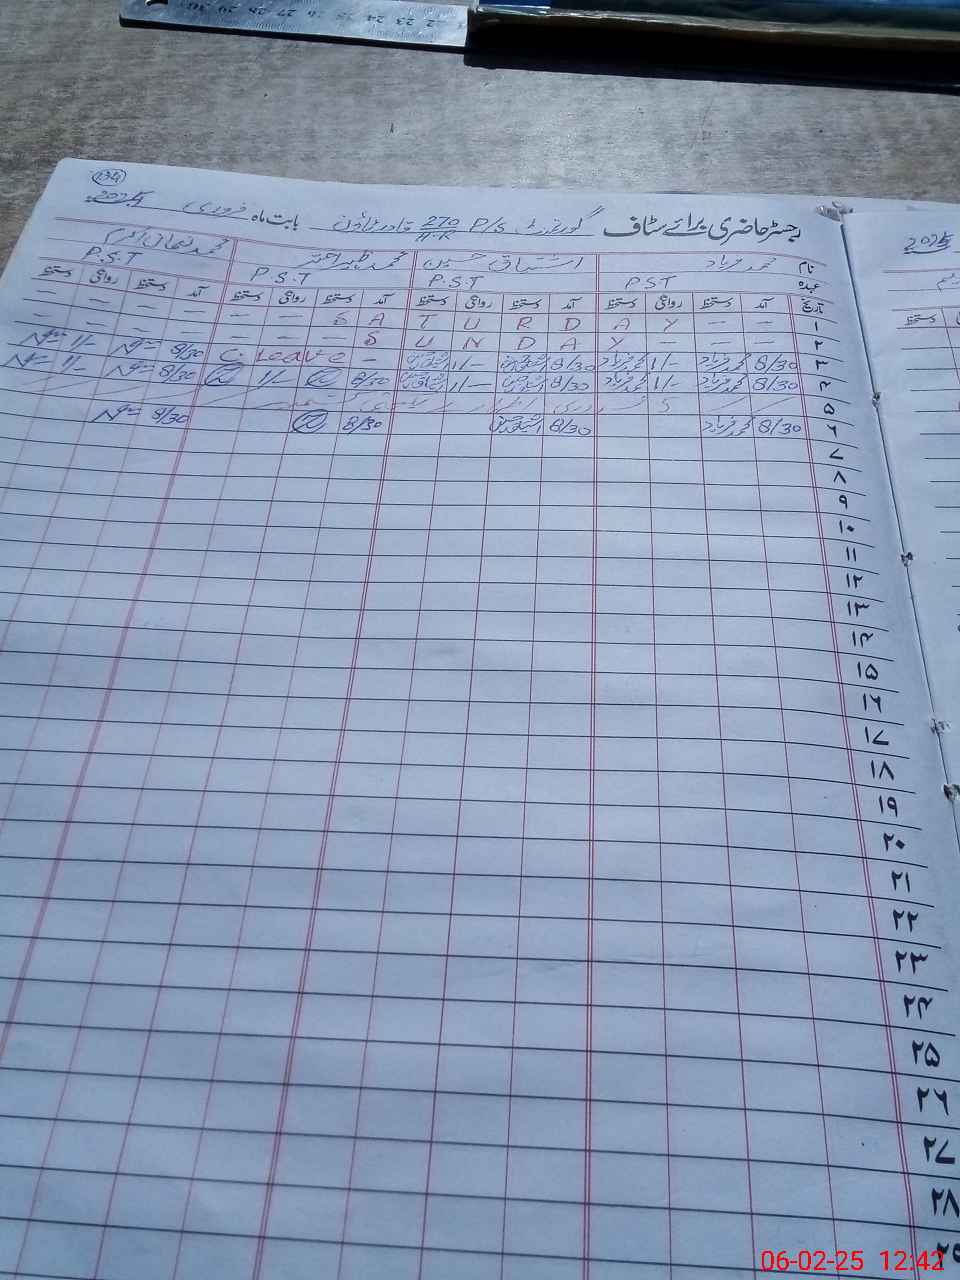 134
رجسٹر حاضری برائے سٹاف گورنمنٹ P/S 270/H-R قادر ٹاؤن بابت ماہ فروری 2025
نام محمد فرہاد اشتیاق حسین محمد ظہیر احمد محمد نعمان اکرم
عہدہ PST P.S.T P.S.T P.S.T
تاریخ آمد دستخط روانگی دستخط آمد دستخط روانگی دستخط آمد دستخط روانگی دستخط آمد دستخط روانگی دستخط
۱ — — S A T U R D A Y — —
۲ — — S U N D A Y — — —
۳ 8/30 محمد فرہاد 1/- محمد فرہاد 8/30 اشتیاق حسین 1/- اشتیاق حسین — C. Leave 8/30 1/-
۴ 8/30 محمد فرہاد 1/- محمد فرہاد 8/30 اشتیاق حسین 1/- اشتیاق حسین 8/30 1/- 8/30 1/-
۵ 5 فروری
۶ 8/30 محمد فرہاد 8/30 اشتیاق حسین 8/30 8/30
۷
۸
۹
۱۰
۱۱
۱۲
۱۳
۱۴
۱۵
۱۶
۱۷
۱۸
۱۹
۲۰
۲۱
۲۲
۲۳
۲۴
۲۵
۲۶
۲۷
۲۸
۲۹
2025
دستخط
06-02-25 12:42